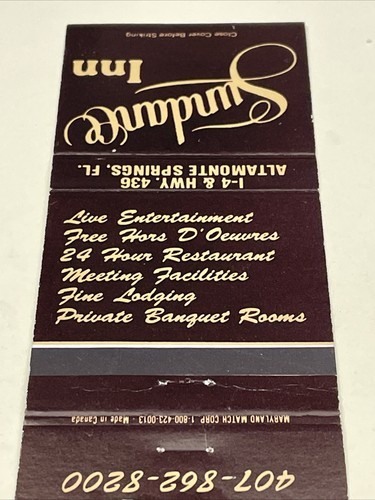 Close Cover Before Striking
Sundance
Inn
I-4 & HWY. 436
ALTAMONTE SPRINGS, FL.
Live Entertainment
Free Hors D'Oeuvres
24 Hour Restaurant
Meeting Facilities
Fine Lodging
Private Banquet Rooms
MARYLAND MATCH CORP. 1-800-423-0013 - Made in Canada
407-862-8200